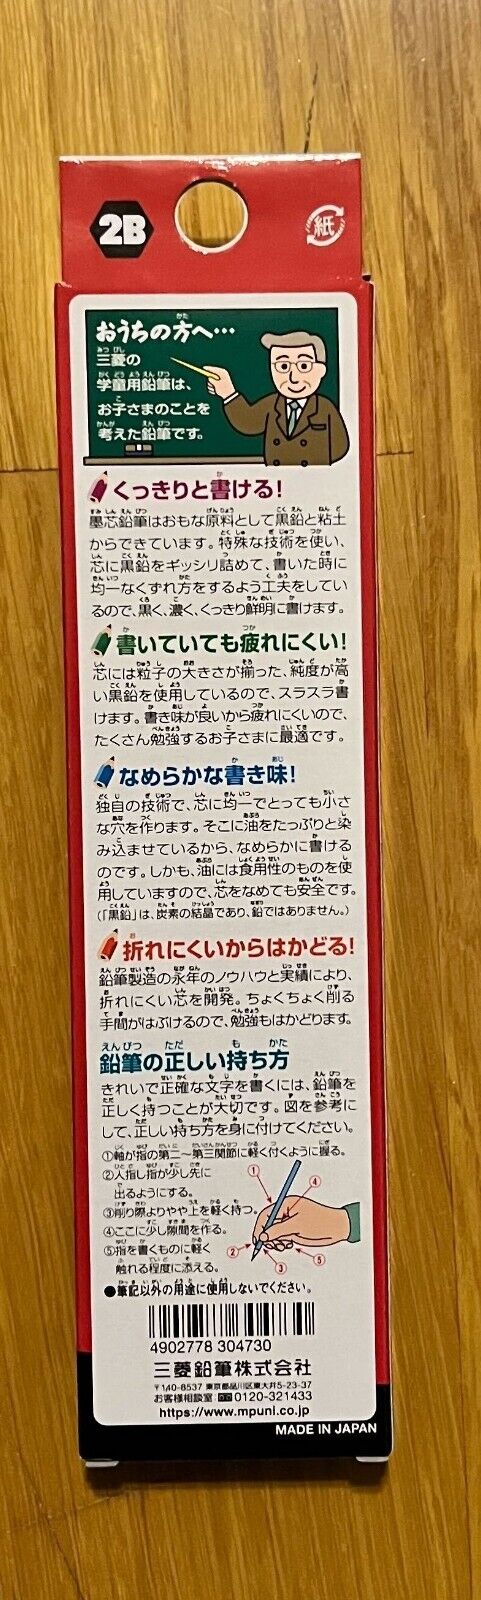 2B
紙
おうちの方へ…
三菱の
学童用鉛筆は、
お子さまのことを
考えた鉛筆です。
くっきりと書ける!
墨芯鉛筆はおもな原料として黒鉛と粘土
からできています。特殊な技術を使い、
芯に黒鉛をギッシリ詰めて、書いた時に
均一なくずれ方をするよう工夫をしてい
るので、黒く、濃く、くっきり鮮明に書けます。
書いていても疲れにくい!
芯には粒子の大きさが揃った、純度が高
い黒鉛を使用しているので、スラスラ書
けます。書き味が良いから疲れにくいので、
たくさん勉強するお子さまに最適です。
なめらかな書き味!
独自の技術で、芯に均一でとっても小さ
な穴を作ります。そこに油をたっぷりと染
み込ませているから、なめらかに書ける
のです。しかも、油には食用性のものを使
用していますので、芯をなめても安全です。
(「黒鉛」は、炭素の結晶であり、鉛ではありません。)
折れにくいからはかどる!
鉛筆製造の永年のノウハウと実績により、
折れにくい芯を開発。ちょくちょく削る
手間がはぶけるので、勉強もはかどります。
鉛筆の正しい持ち方
きれいで正確な文字を書くには、鉛筆を
正しく持つことが大切です。図を参考に
して、正しい持ち方を身に付けてください。
①軸が指の第二~第三関節に軽く付くように握る。
②人指し指が少し先に
出るようにする。
③削り際よりやや上を軽く持つ。
④ここに少し隙間を作る。
⑤指を書くものに軽く
触れる程度に添える。
① ④
② ③ ⑤
●筆記以外の用途に使用しないでください。
4902778 304730
三菱鉛筆株式会社
〒140-8537 東京都品川区東大井5-23-37
お客様相談室 0120-321433
https://www.mpuni.co.jp
MADE IN JAPAN